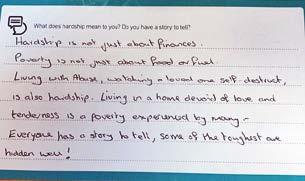 What does hardship mean to you? Do you have a story to tell?
Hardship is not just about finances.
Poverty is not just about food or fuel.
Living with Abuse, watching a loved one self-destruct,
is also hardship. Living in a home devoid of love and
tenderness is a poverty experienced by many -
Everyone has a story to tell, some of the toughest are
hidden well!